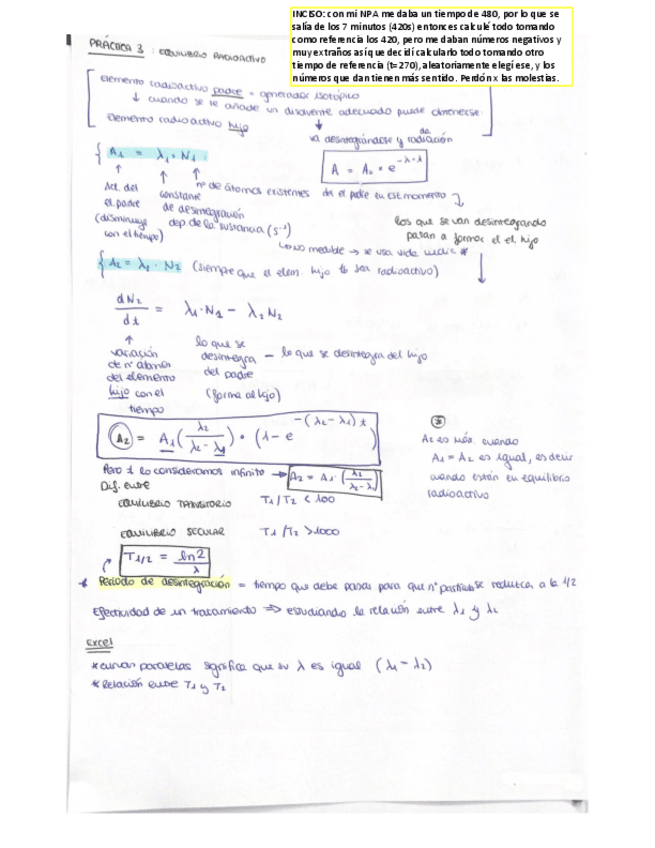 INCISO: con mi NPA me daba un tiempo de 480, por lo que se
salía de los 7 minutos (420s) entonces calculé todo tomando
como referencia los 420, pero me daban números negativos y
muy extraños así que decidí calcularlo todo tomando otro
tiempo de referencia (t=270), aleatoriamente elegí ese, y los
números que dan tienen más sentido. Perdón x las molestias.
PRÁCTICA 3: EQUILIBRIO RADIOACTIVO
Elemento radioactivo padre = generador isotópico
↓ cuando se le añade un disolvente adecuado puede obtenerse:
Elemento radioactivo hijo
va desintegrándose y da radiación
A = A₀ · e^(-λ·t)
A₁ = λ₁ · N₁
nº de átomos existentes del el padre en ese momento
Act. del el padre (disminuye con el tiempo)
constante de desintegración dep de la sustancia (s⁻¹)
los que se van desintegrando
pasan a formar el el. hijo
no medible → se usa vida *
A₂ = λ₂ · N₂ (siempre que el elem. hijo sea radioactivo)
dN₂/dt = λ₁·N₁ - λ₂N₂
variación de nº átomos del elemento hijo con el tiempo
lo que se desintegra del padre (forma al hijo)
- lo que se desintegra del hijo
A₂ = A₁(λ₂/(λ₂-λ₁)) · (1-e^(-(λ₂-λ₁)t))
A₂ es máx. cuando
A₁ = A₂ es igual, es decir
cuando están en equilibrio
radioactivo
Pero t lo consideramos infinito → A₂ = A₁·(λ₂/(λ₂-λ₁))
Dif. entre
EQUILIBRIO TRANSITORIO T₁/T₂ < 100
EQUILIBRIO SECULAR T₁/T₂ > 1000
T₁/₂ = ln2/λ
* Periodo de desintegración = tiempo que debe pasar para que nº partículas se reduzca a la 1/2
Efectividad de un tratamiento ⇒ estudiando la relación entre λ₁ y λ₂
Excel
*curvas paralelas significa que su λ es igual (λ₁ - λ₂)
*Relación entre T₁ y T₂